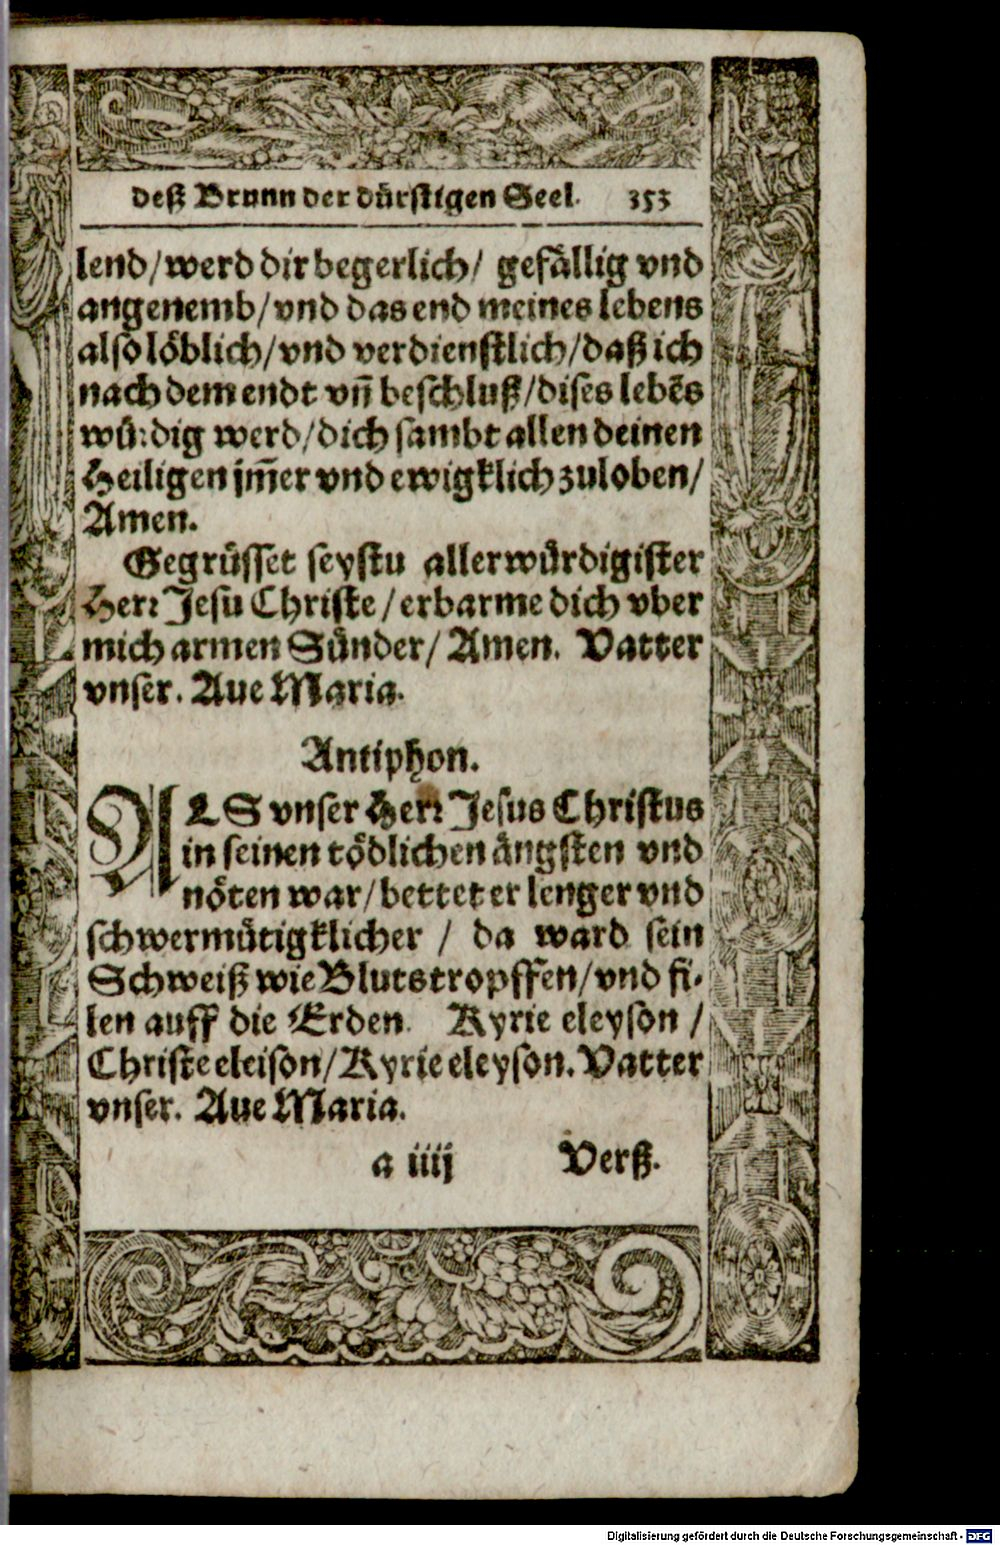 deß Brunn der dürstigen Seel. 353
lend/werd dir begerlich/ gefällig vnd
angenemb/vnd das end meines lebens
also löblich/vnd verdienstlich/daß ich
nach dem endt vn̄ beschluß/dises lebēs
würdig werd/dich sambt allen deinen
Heiligen jm̄er vnd ewigklich zuloben/
Amen.
Gegrüsset seystu allerwürdigister
Herr Jesu Christe/erbarme dich vber
mich armen Sünder/ Amen. Vatter
vnser. Aue Maria.
Antiphon.
ALS vnser Herr Jesus Christus
in seinen tödlichen ängsten vnd
nöten war/bettet er lenger vnd
schwermütigklicher / da ward sein
Schweiß wie Blutstropffen/vnd fi-
len auff die Erden. Kyrie eleyson /
Christe eleison/Kyrie eleyson. Vatter
vnser. Aue Maria.
a iiij Verß.
Digitalisierung gefördert durch die Deutsche Forschungsgemeinschaft - DFG